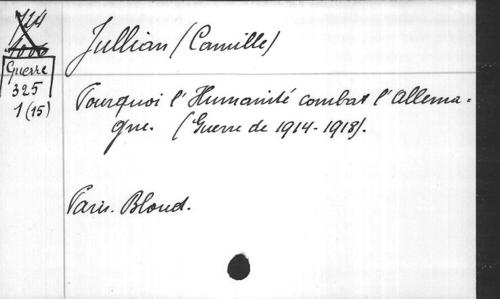 Jullian (Camille)
Guerre
325
1 (15)
Pourquoi l'Humanité combat l'Allema-
gne. (Guerre de 1914-1918).
Paris. Bloud.